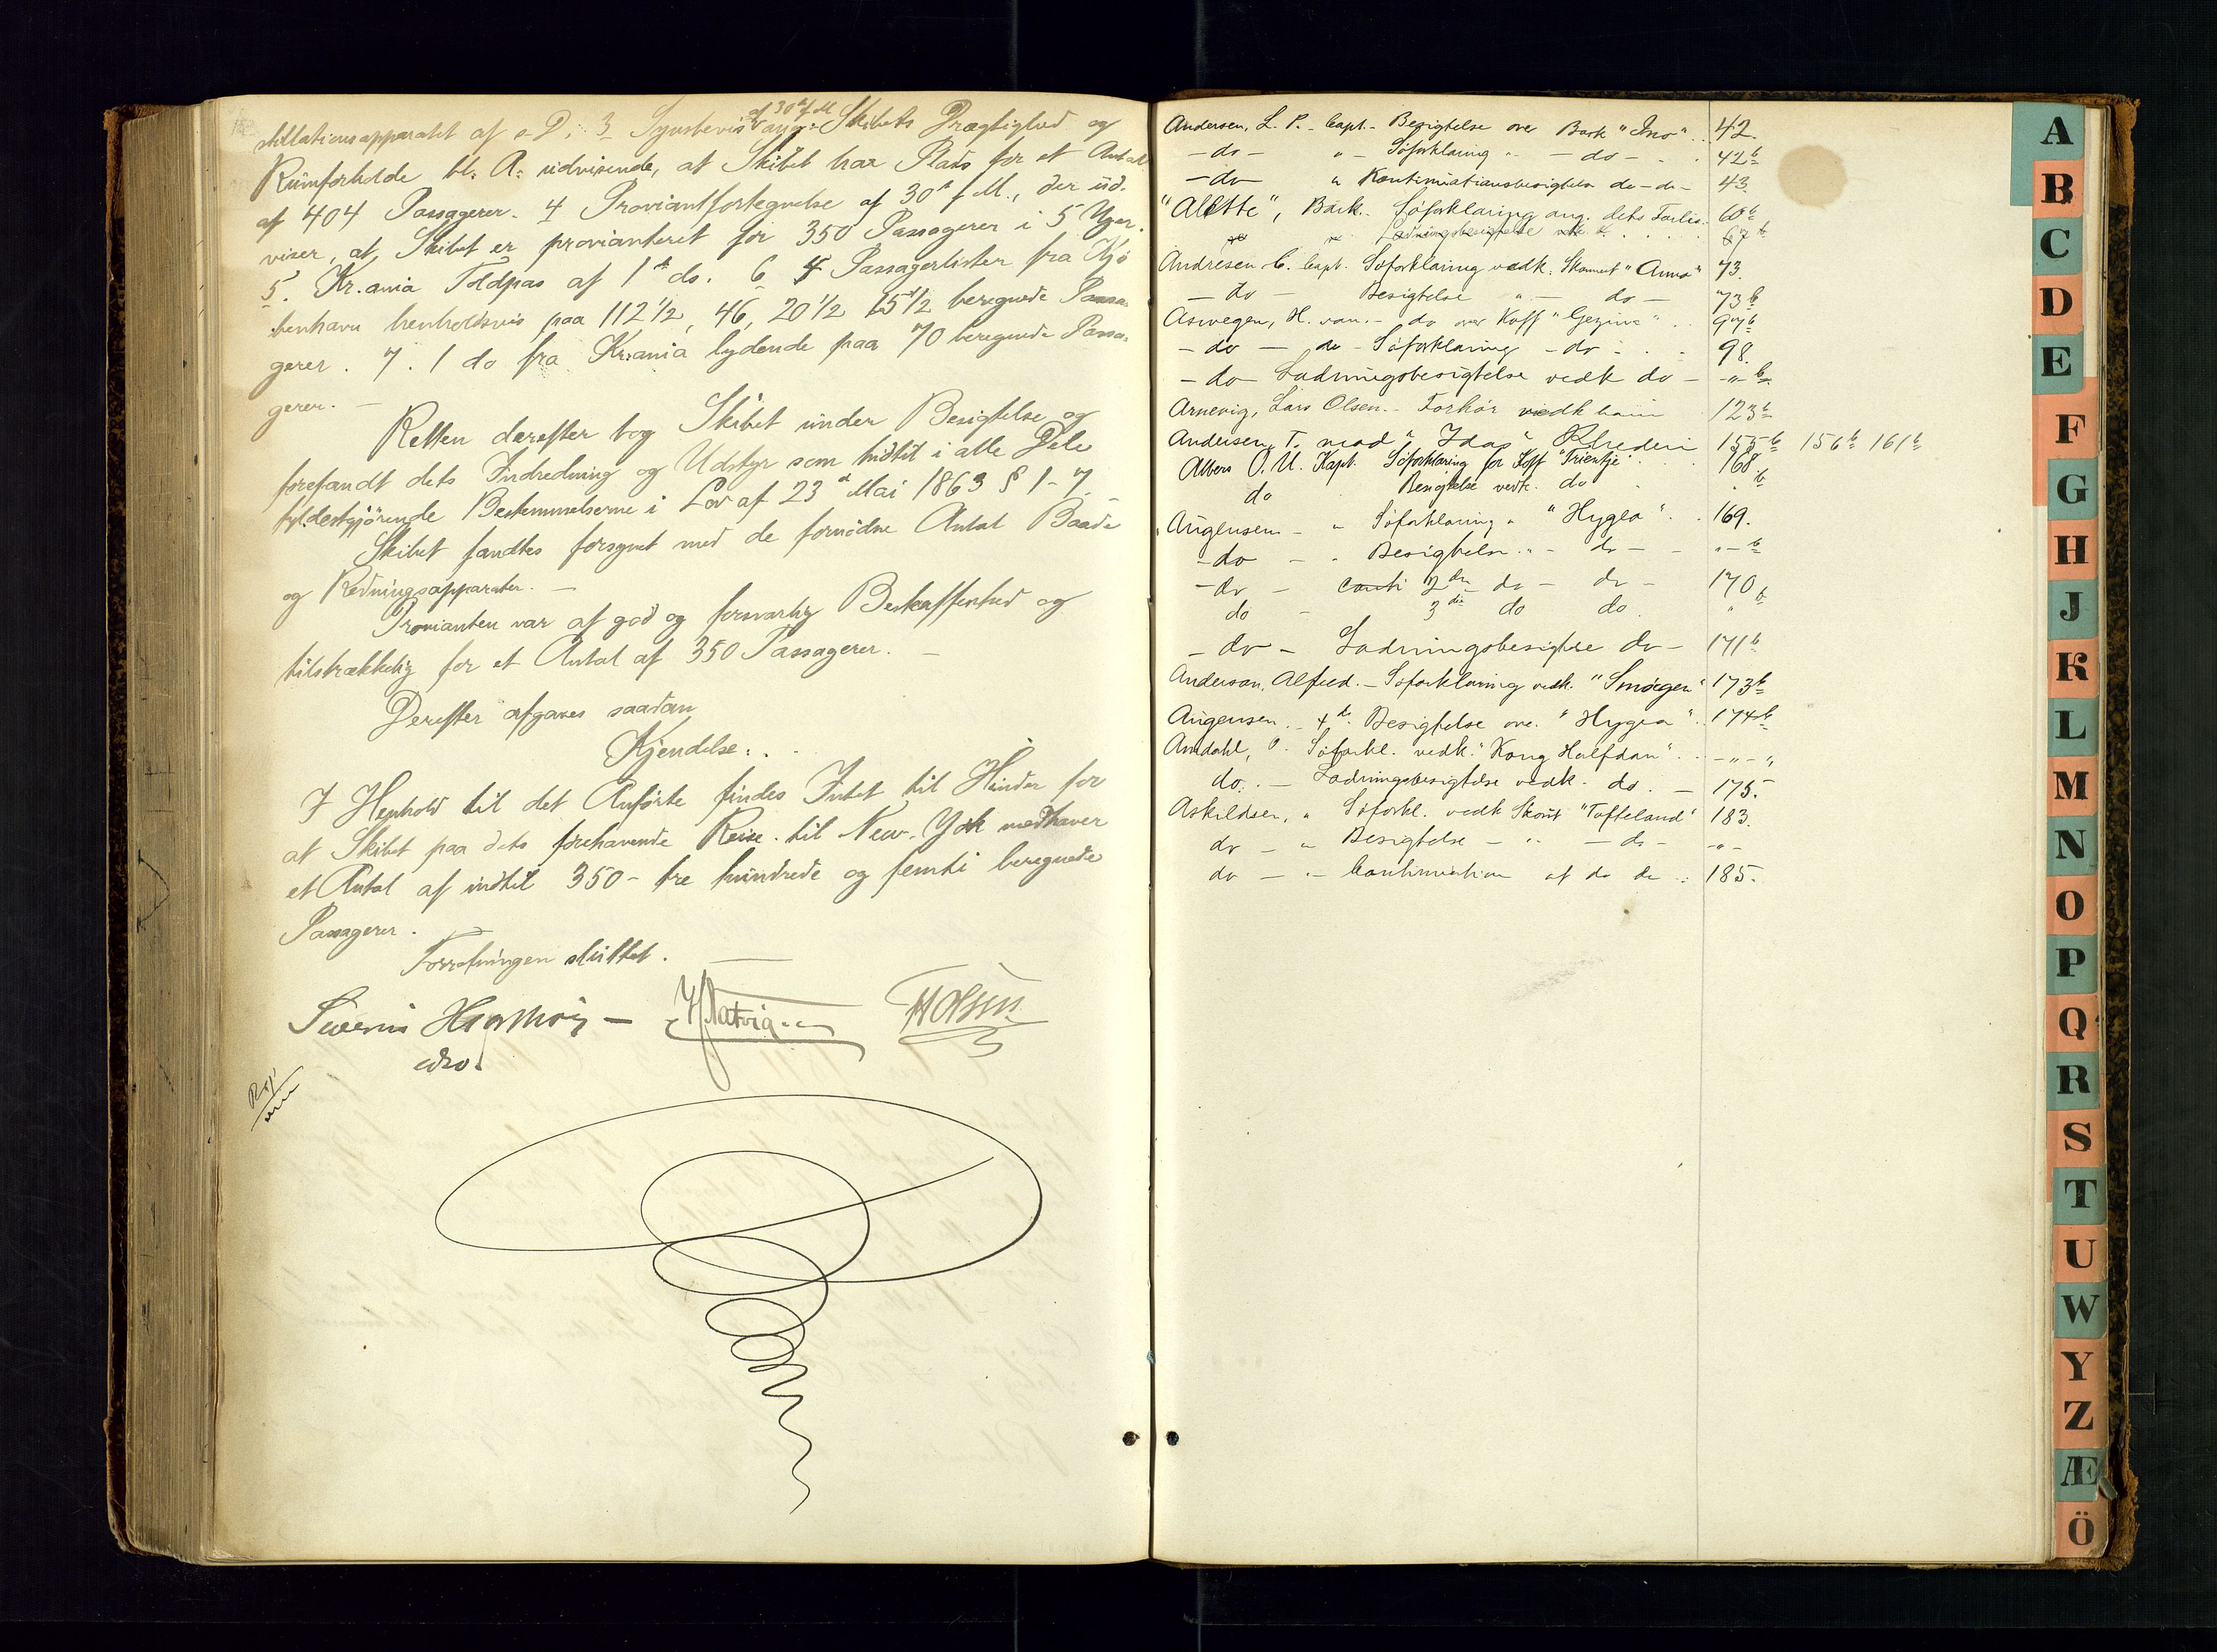 stillationsapparatet af s. D. 3 Synsbevis af 30 f. M. ang. Skibets Drægtighed og
Rumforholde bl. A. udvisende, at Skibet har Plads for et Antal
af 404 Passagerer. 4 Proviantfortegnelse af 30te f. M., der ud-
viser, at Skibet er provianteret for 350 Passagerer i 5 Uger.
5. Kr.ania Toldpas af 1te ds. 6 4 Passagerlister fra Kjø
benhavn henholdsvis paa 112 1/2, 46, 20 1/2 15 1/2 beregnede Passa-
gerer. 7. 1 do fra Kr.ania lydende paa 70 beregnede Passa-
gerer. —
Retten derefter tog Skibet under Besigtelse og
forefandt dets Indredning og Udstyr som hidtil i alle Dele
fyldestgjørende Bestemmelserne i Lov af 23de Mai 1863 § 1-7
Skibet fandtes forsynet med de fornødne Antal Baade
og Redningsapparater. —
Provianten var af god og forsvarlig Beskaffenhed og
tilstrækkelig for et Antal af 350 Passagerer. —
Derefter afgaves saadan
Kjendelse:
I Henhold til det Anførte findes Intet til Hinder for
at Skibet paa dets forehavende Reise til New-York medhaver
et Antal af indtil 350 - tre hundrede og femti beregnede
Passagerer.
Forretningen sluttet. —
H. Natvig
Andersen, L. P. - Capt. - Besigtelse over Bark "Ino" . 42.
- do - " - Søforklaring " - do - . . 42b
- do " Kontinuationsbesigtelse do - do - 43.
"Alette", Bark. Søforklaring ang. dets Forlis. 60b
do Ladningsbesigtelse vedk. 67b
Andresen C. Capt. Søforklaring vedk. Skonnert "Anna" 73.
- do - Besigtelse " - do - 73b
Aswegen, H. van. - do over Koff "Gezina" . 97b
- do - do - Søforklaring - do - . . 98.
- do - Ladningsbesigtelse vedk do - -"- b
Arnevig, Lars Olsen. - Forhør vedk ham 123b
Andersen, T. mod "Idas" Rhederi 155b 156b 161b
Albers O. U. Kapt. Søforklaring for Koff "Trientje" . . 168
do Besigtelse vedk. do . . b
Augensen - " Søforklaring " "Hygea" . . 169.
- do - " Besigtelse " - do - - " - b
- do - conti 2den do - do - 170
do - 3die do do. " b
- do - Ladningsbesigtelse do - 171b
Anderson, Alfred. - Søforklaring vedk. "Smøgen" 173b
Augensen - 4de Besigtelse over "Hygea" . 174b
Amdahl, O. Søforkl. vedk. "Kong Halfdan" . - " - "
do. . - Ladningsbesigtelse vedk. do. - 175.
Askildsen, " Søforkl. vedk Skont "Tofteland" 183.
do - " Besigtelse - " - do - - " -
do - " - Continuation af do do . . 185.
A
B
C
D
E
F
G
H
J
K
L
M
N
O
P
Q
R
S
T
U
W
Y
Z
Æ
Ö